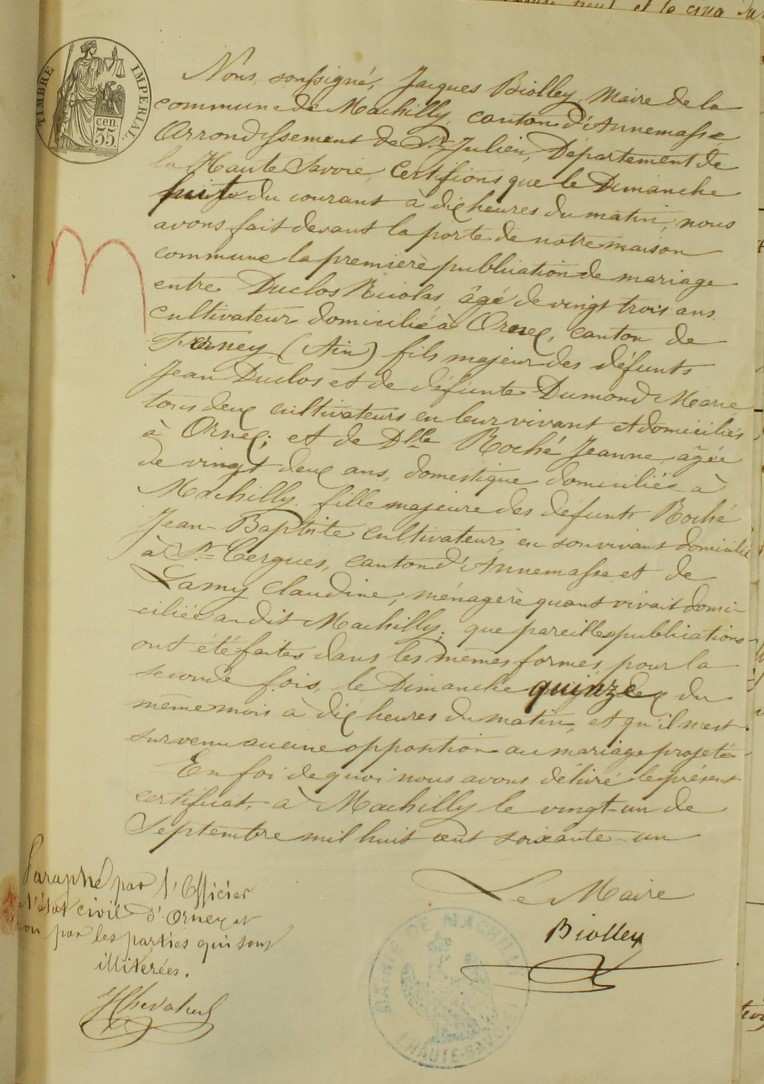 TIMBRE IMPERIAL
cen.
35
Nous, soussigné, Jacques Biolley, Maire de la
commune de Machilly, canton d'Annemasse
Arrondissement de St Julien, Département de
la Haute Savoie, certifions que le Dimanche
huit du courant à dix heures du matin, nous
avons fait devant la porte de notre maison
commune la première publication de mariage
entre Duclos Nicolas, âgé de vingt trois ans
cultivateur domicilié à Ornex, canton de
Ferney (Ain) fils majeur des défunts
Jean Duclos et de défunte Dumond Marie
tous deux cultivateurs en leur vivant et domiciliés
à Ornex; et de Dlle Roché Jeanne, agée
de vingt deux ans, domestique domiciliée à
Machilly, fille majeure des défunts Roché
Jean-Baptiste cultivateur en son vivant domicilié
à St Cergues, canton d'Annemasse et de
Lamy Claudine, ménagère quant vivait domi-
ciliée audit Machilly; que pareilles publications
ont été faites dans les mêmes formes, pour la
seconde fois, le Dimanche quinze du
même mois à dix heures du matin, et qu'il n'est
survenu aucune opposition au mariage projeté
En foi de quoi nous avons délivré le présent
certificat, à Machilly le vingt-un de
Septembre mil huit cent soixante-un
Le Maire
Biolley
MAIRIE DE MACHILLY
(HAUTE-SAVOIE)
Paraphé par l'Officier
l'état civil d'Ornex et
non par les parties qui sont
illiterées.